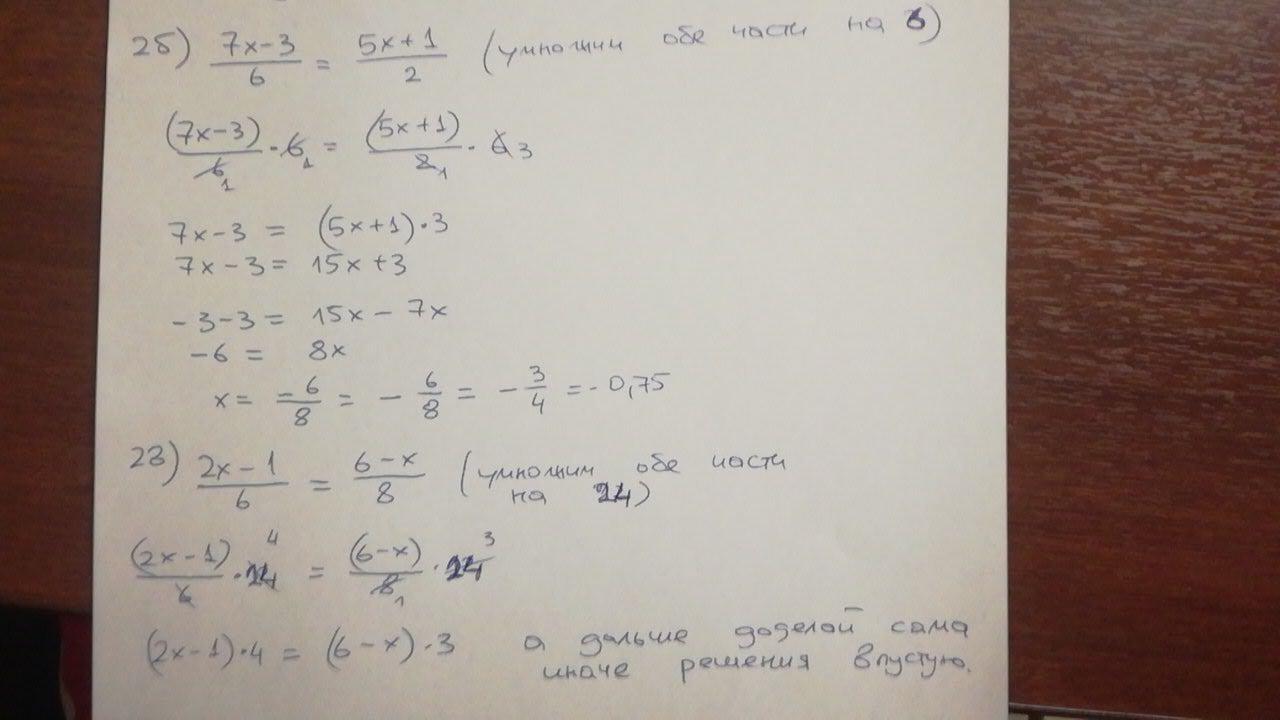 2б) (7x-3)/6 = (5x+1)/2 (умножим обе части на 6)
(7x-3)/6 1 · 6 1 = (5x+1)/2 1 · 6 3
7x-3 = (5x+1)·3
7x-3 = 15x+3
-3-3 = 15x-7x
-6 = 8x
x = -6/8 = -6/8 = -3/4 = -0,75
2в) (2x-1)/6 = (6-x)/8 (умножим обе части
на 24)
(2x-1)/6 · 24 4 = (6-x)/8 1 · 24 3
(2x-1)·4 = (6-x)·3 а дальше доделай сама
иначе решения впустую.